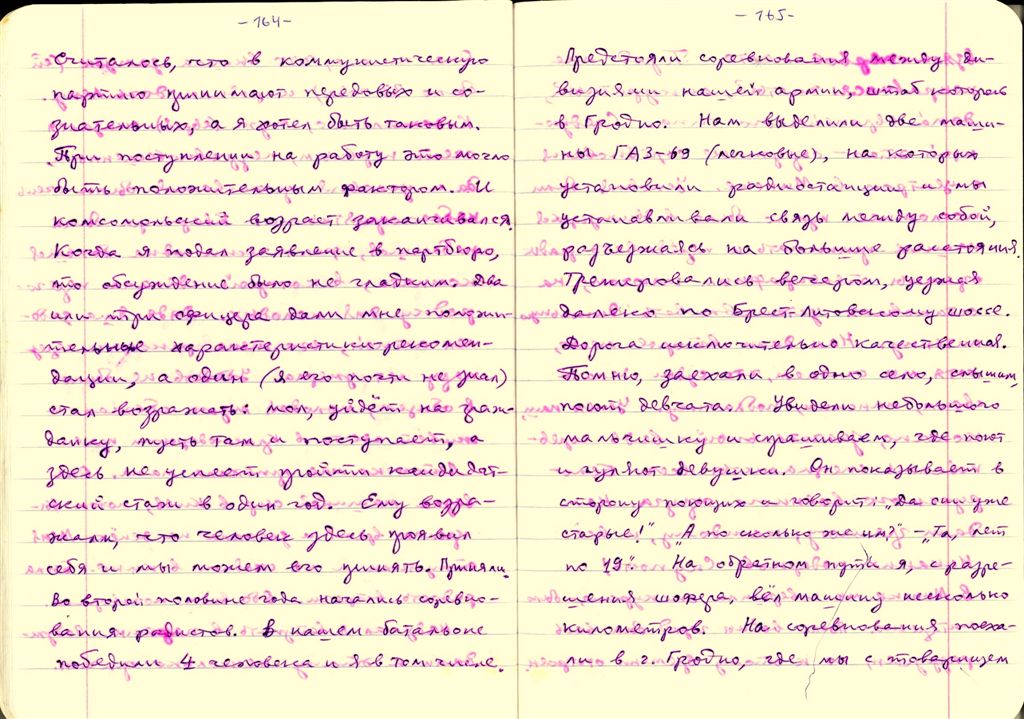 -164-
Считалось, что в коммунистическую
партию принимают передовых и со-
знательных, а я хотел быть таковым.
При поступлении на работу это могло
быть положительным фактором. И
комсомольский возраст заканчивался.
Когда я подал заявление в партбюро,
то обсуждение было не гладким. Два
или три офицера дали мне положи-
тельные характеристики-рекомен-
дации, а один (я его почти не знал)
стал возражать: мол, уйдёт на граж-
данку, пусть там и поступает, а
здесь не успеет пройти кандидат-
ский стаж в один год. Ему возра-
жали, что человек здесь проявил
себя и мы можем его принять. Приняли.
Во второй половине года начались соревно-
вания радистов. В нашем батальоне
победили 4 человека и я в том числе.
-165-
Предстояли соревнования между ди-
визиями нашей армии, штаб которой
в Гродно. Нам выделили две маши-
ны ГАЗ-69 (легковые), на которых
установили радиостанции и мы
устанавливали связь между собой,
разъезжаясь на большие расстояния.
Тренировались вечером, уезжая
далеко по Брест-Литовскому шоссе.
Дорога исключительно качественная.
Помню, заехали в одно село, слышим,
поют девчата. Увидели небольшого
мальчишку и спрашиваем, где поют
и гуляют девушки. Он показывает в
сторону поющих и говорит: „Да они уже
старые!" „А по сколько же им?" – „Та, лет
по 19". На обратном пути я, с разре-
шения шофера, вёл машину несколько
километров. На соревнования поеха-
ли в г. Гродно, где мы с товарищем